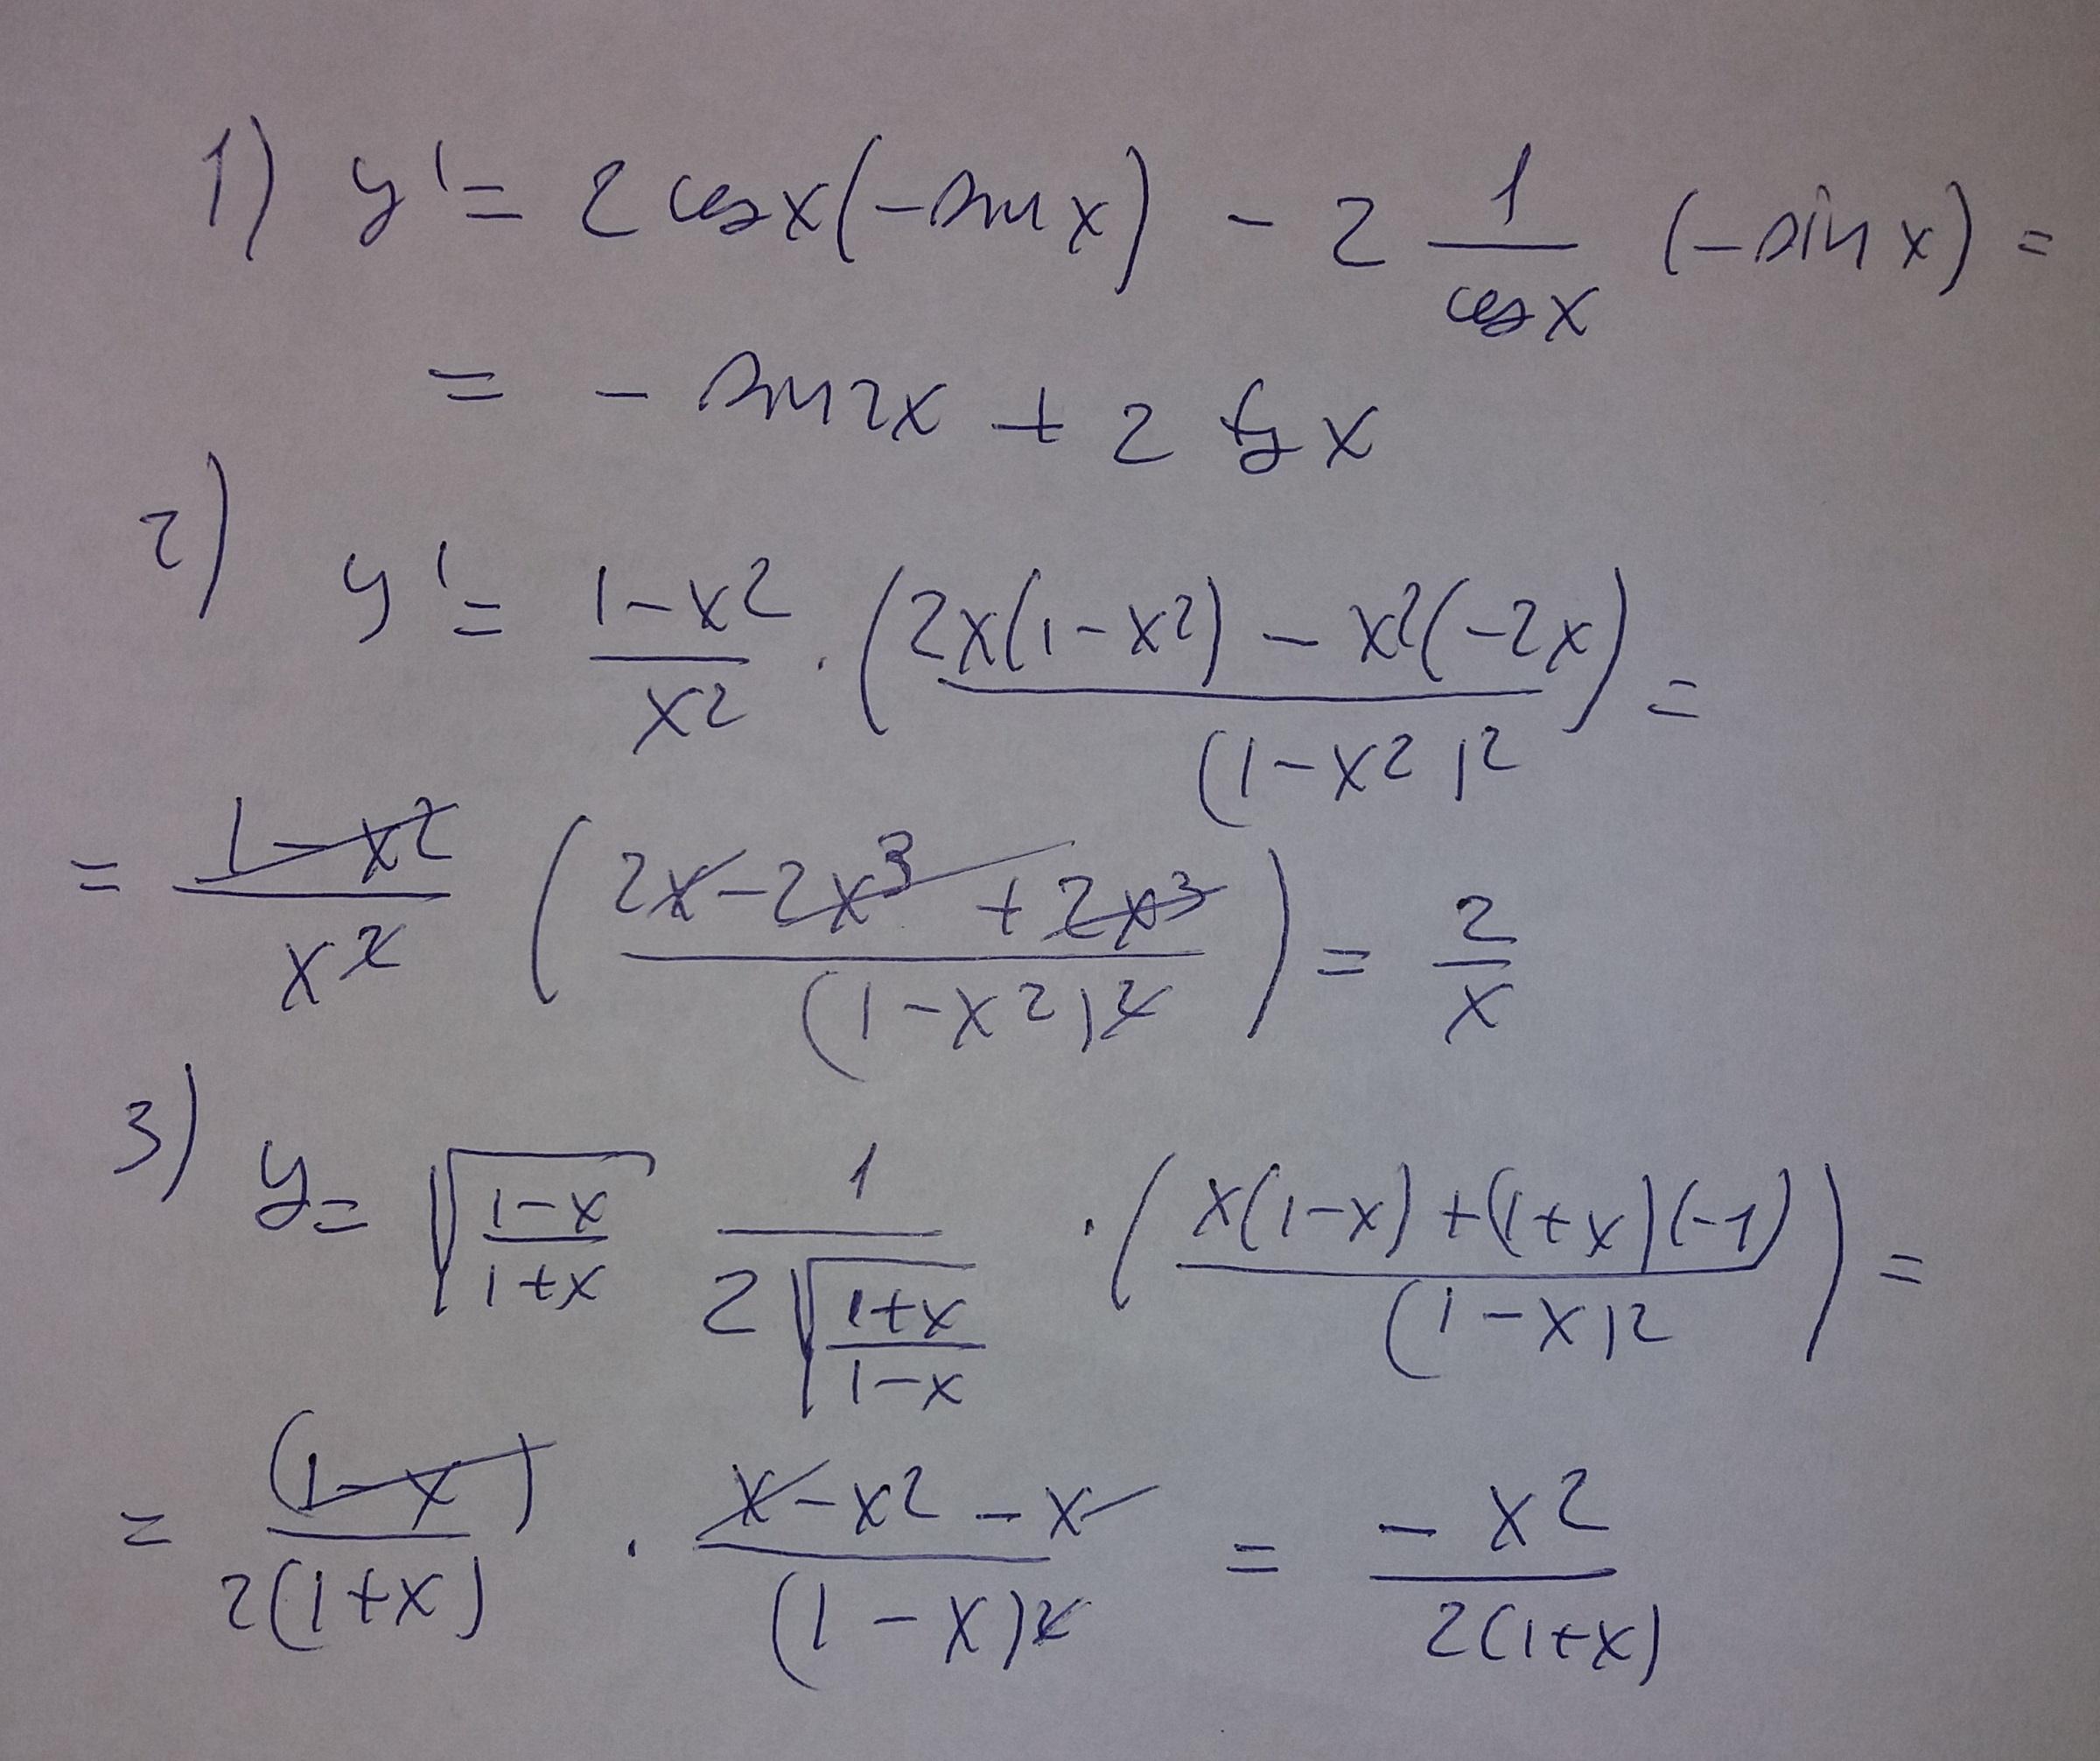 1) y' = 2 cos x(-sin x) - 2 \frac{1}{cos x} (-sin x) =
= - sin 2x + 2 tg x
2) y' = \frac{1-x^2}{x^2} \cdot (\frac{2x(1-x^2) - x^2(-2x)}{(1-x^2)^2}) =
= \frac{1-x^2}{x^2} (\frac{2x-2x^3+2x^3}{(1-x^2)^2}) = \frac{2}{x}
3) y = \sqrt{\frac{1-x}{1+x}} \frac{1}{2\sqrt{\frac{1+x}{1-x}}} \cdot (\frac{x(1-x)+(1+x)(-1)}{(1-x)^2}) =
= \frac{(1-x)}{2(1+x)} \cdot \frac{x-x^2-x}{(1-x)^2} = \frac{-x^2}{2(1+x)}